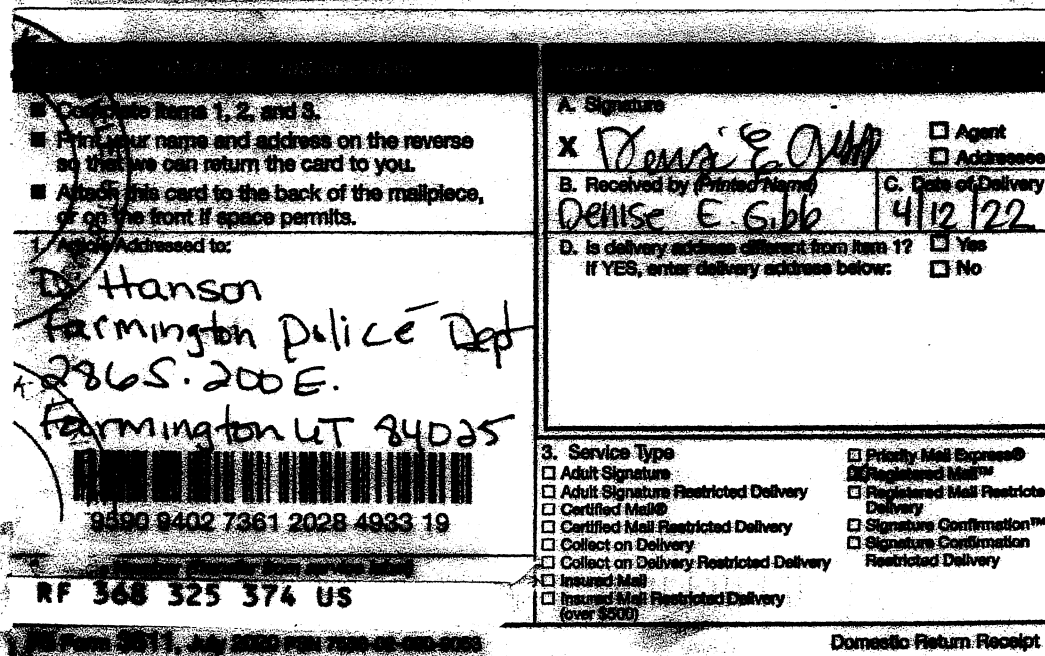 ■ Complete items 1, 2, and 3.
■ Print your name and address on the reverse
so that we can return the card to you.
■ Attach this card to the back of the mailpiece,
or on the front if space permits.
1. Article Addressed to:
D. Hanson
Farmington Police Dept
286 S. 200 E.
Farmington UT 84025
9590 9402 7361 2028 4933 19
RF 368 325 374 US
PS Form 3811, July 2020 PSN 7530-02-000-9053
A. Signature
X Denise E Gibb
☐ Agent
☐ Addressee
B. Received by (Printed Name)
Denise E. Gibb
C. Date of Delivery
4/12/22
D. Is delivery address different from item 1? ☐ Yes
If YES, enter delivery address below: ☐ No
3. Service Type
☐ Adult Signature
☐ Adult Signature Restricted Delivery
☐ Certified Mail®
☐ Certified Mail Restricted Delivery
☐ Collect on Delivery
☐ Collect on Delivery Restricted Delivery
☐ Insured Mail
☐ Insured Mail Restricted Delivery
(over $500)
☐ Priority Mail Express®
☒ Registered Mail™
☐ Registered Mail Restricted
Delivery
☐ Signature Confirmation™
☐ Signature Confirmation
Restricted Delivery
Domestic Return Receipt